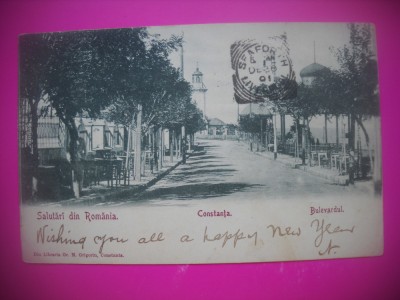 SEAFORTH
LIV
DE 30
01
Salutări din România.
Constanţa.
Bulevardul.
Wishing you all a happy New Year
Din Librăria Gr. M. Grigoriu, Constanţa.